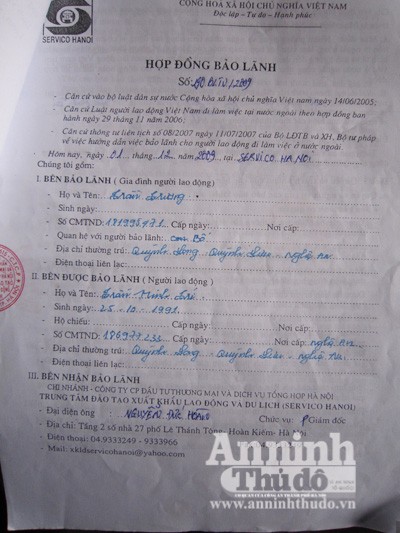 CỘNG HOÀ XÃ HỘI CHỦ NGHĨA VIỆT NAM
Độc lập - Tự do - Hạnh phúc
SERVICO HANOI
HỢP ĐỒNG BẢO LÃNH
Số: /2009
- Căn cứ vào bộ luật dân sự nước Cộng hòa xã hội chủ nghĩa Việt nam ngày 14/06/2005;
- Căn cứ Luật người lao động Việt Nam đi làm việc tại nước ngoài theo hợp đồng ban
hành ngày 29 tháng 11 năm 2006;
- Căn cứ thông tư liên tịch số 08/2007 ngày 11/07/2007 của Bộ LĐTB và XH, Bộ tư pháp
về việc hướng dẫn việc bảo lãnh cho người lao động đi làm việc ở nước ngoài
- Hôm nay, ngày 01 tháng 12 năm 2009 tại SERVICO HA NOI
Chúng tôi gồm:
I. BÊN BẢO LÃNH ( Gia đình người lao động )
- Họ và Tên: Trần
- Sinh ngày:
- Số CMTND: Cấp ngày: Nơi cấp:
- Quan hệ với người bảo lãnh: con Bố
- Địa chỉ thường trú: Quỳnh Long Quỳnh Lưu Nghệ An
- Điện thoại liên lạc:
II. BÊN ĐƯỢC BẢO LÃNH ( Người lao động )
- Họ và Tên: Trần Minh
- Sinh ngày: 25 - 10 - 1991
- Hộ chiếu: Cấp ngày: Nơi cấp:
- Số CMTND: 186977233 Cấp ngày: Nơi cấp: nghệ An
- Địa chỉ thường trú: Quỳnh Long Quỳnh Lưu - Nghệ An
- Điện thoại liên lạc:
III. BÊN NHẬN BẢO LÃNH
CHI NHÁNH - CÔNG TY CP ĐẦU TƯ THƯƠNG MẠI VÀ DỊCH VỤ TỔNG HỢP HÀ NỘI
TRUNG TÂM ĐÀO TẠO XUẤT KHẨU LAO ĐỘNG VÀ DU LỊCH (SERVICO HANOI)
- Đại diện ông : NGUYỄN ĐỨC Chức vụ: P Giám đốc
- Địa chỉ: Tầng 2 số nhà 27 phố Lê Thánh Tông- Hoàn Kiếm- Hà Nội
- Điện thoại: 04.9333249 - 9333966
- Mail: xkldservicohanoi@yahoo.com
An ninh
Thủ đô
CƠ QUAN CỦA CÔNG AN THÀNH PHỐ HÀ NỘI
www.anninhthudo.vn